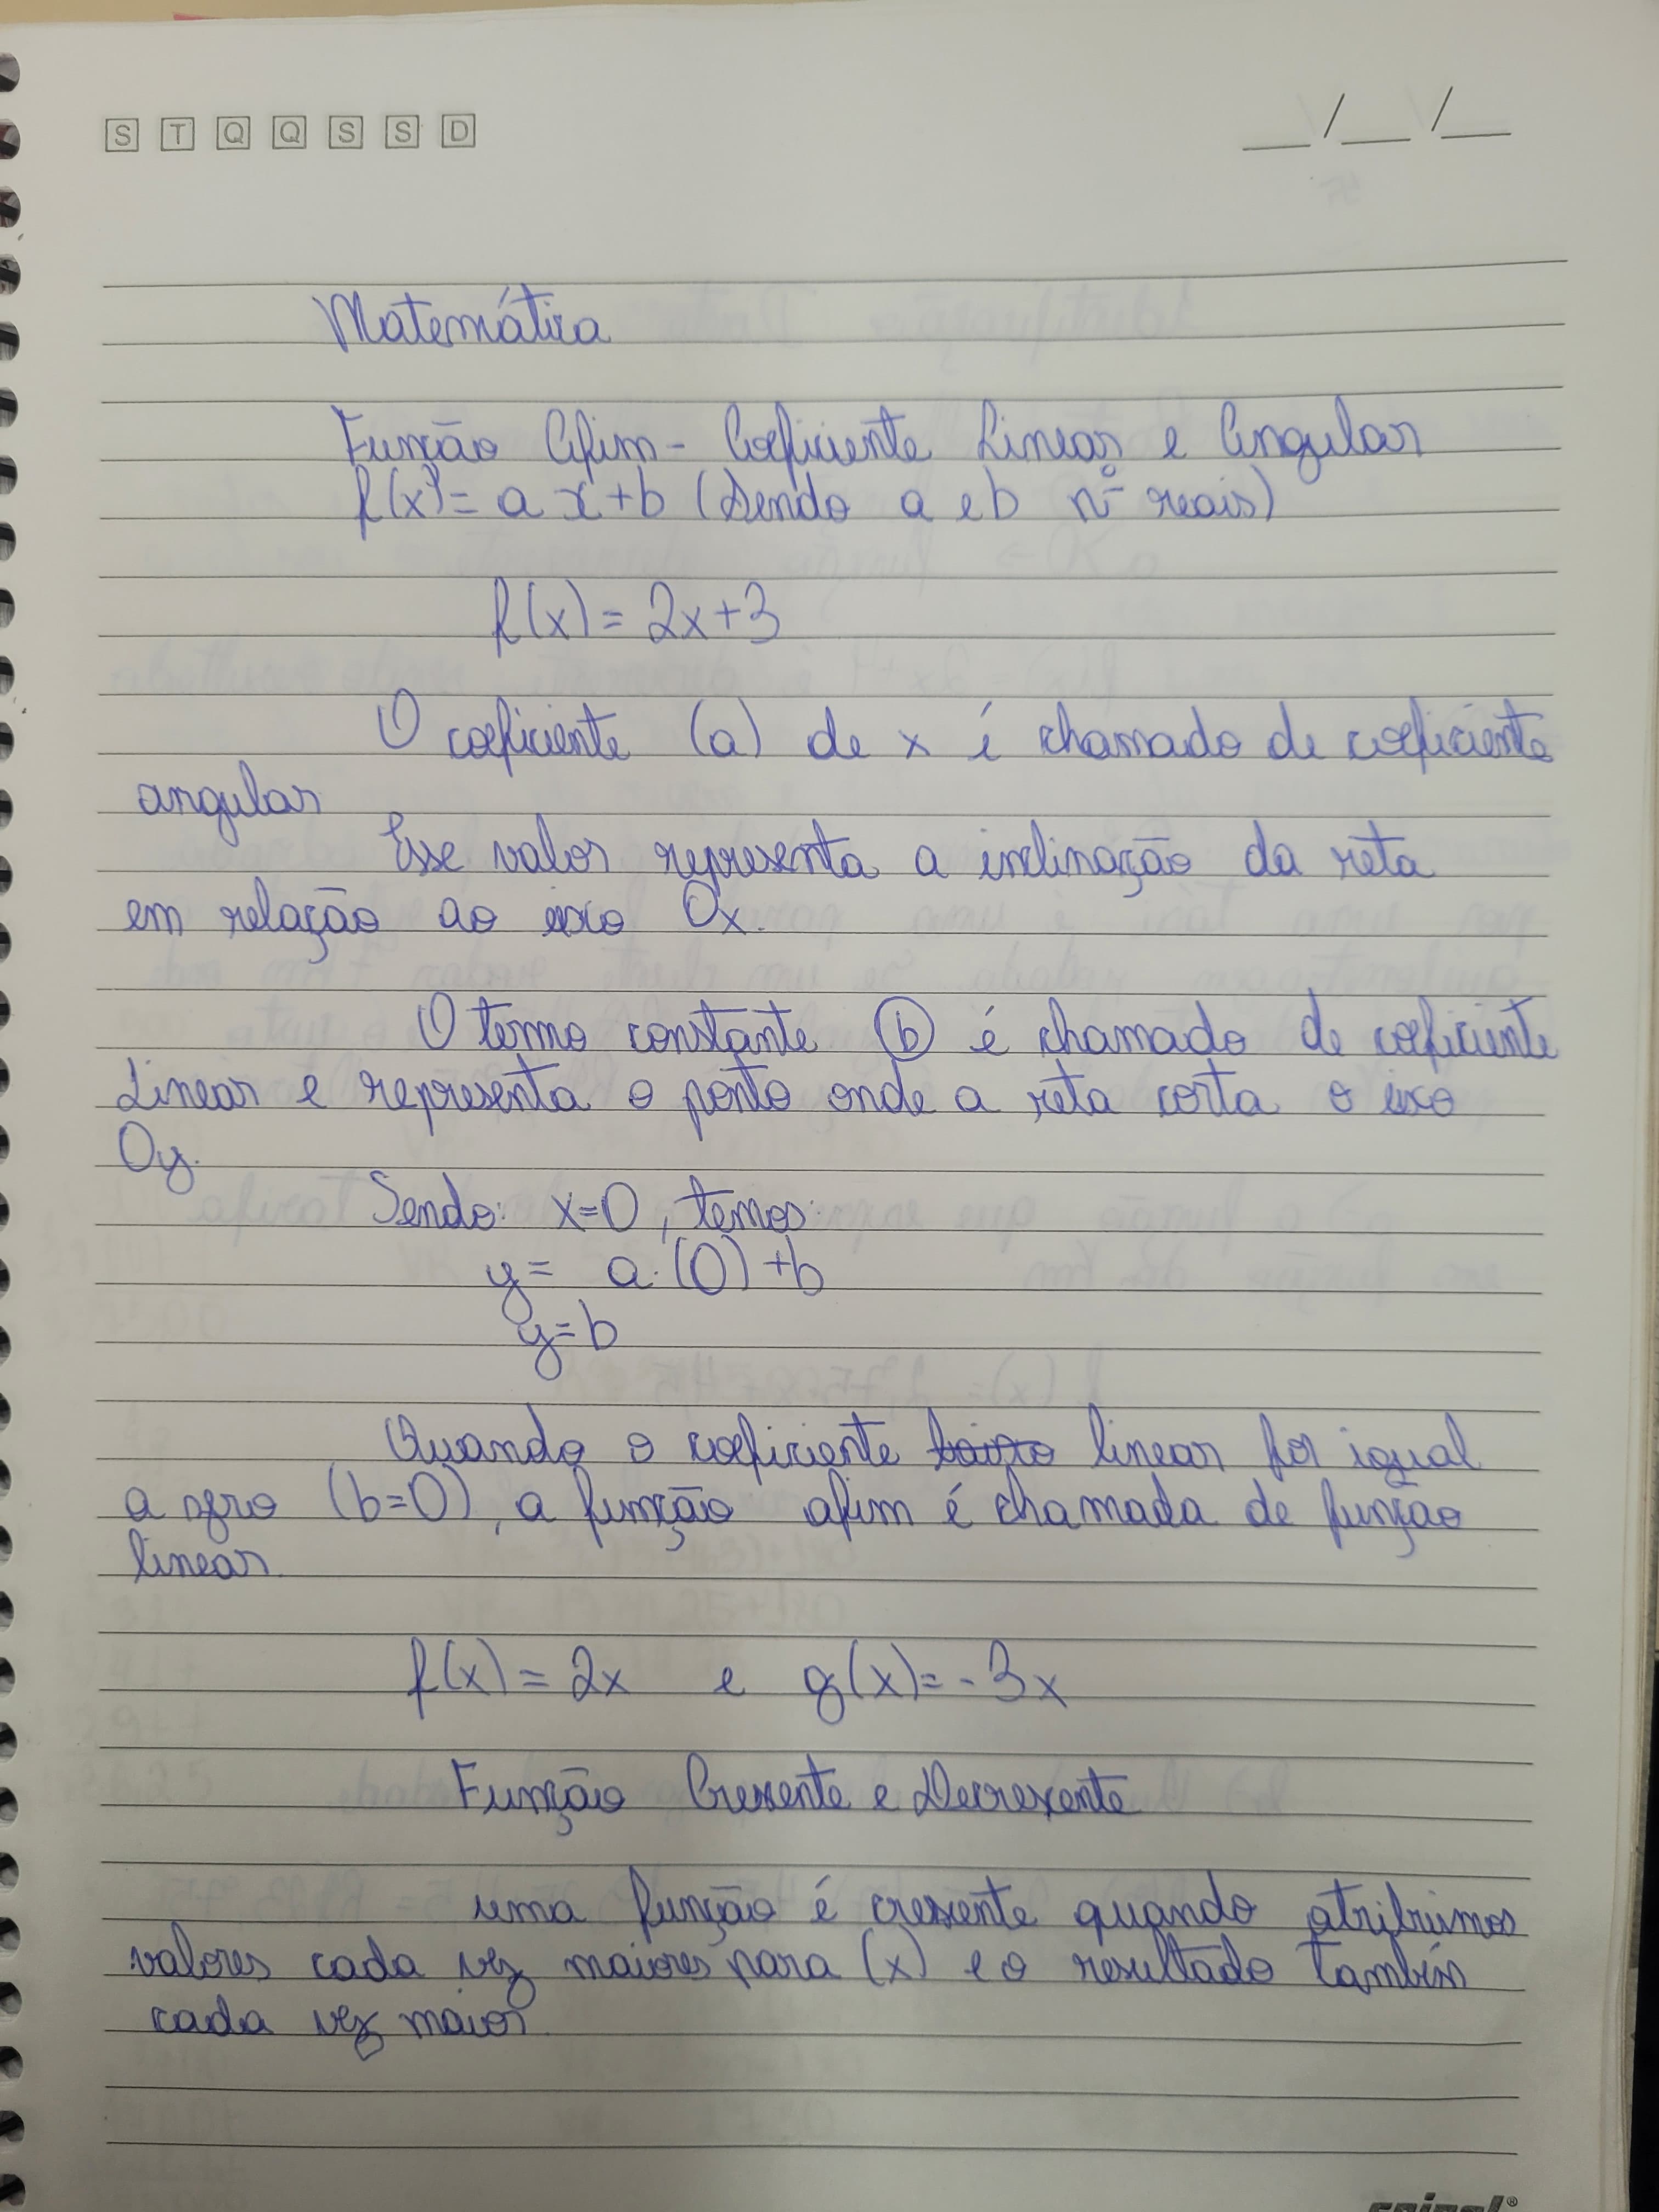 S T Q Q S S D
__/__/__
Matemática
Função Afim - Coeficiente Linear e Angular
f(x) = a x + b (Sendo a e b nº reais)
f(x) = 2x+3
O coeficiente (a) de x é chamado de coeficiente
angular
Esse valor representa a inclinação da reta
em relação ao eixo Ox.
O termo constante b é chamado de coeficiente
Linear e representa o ponto onde a reta corta o eixo
Oy.
Sendo: x=0, temos:
y = a.(0)+b
y=b
Quando o coeficiente linear for igual
a zero (b=0), a função afim é chamada de função
linear.
f(x) = 2x e g(x)= -3x
Função Crescente e Decrescente
uma função é crescente quando atribuimos
valores cada vez maiores para (x) e o resultado também
cada vez maior.